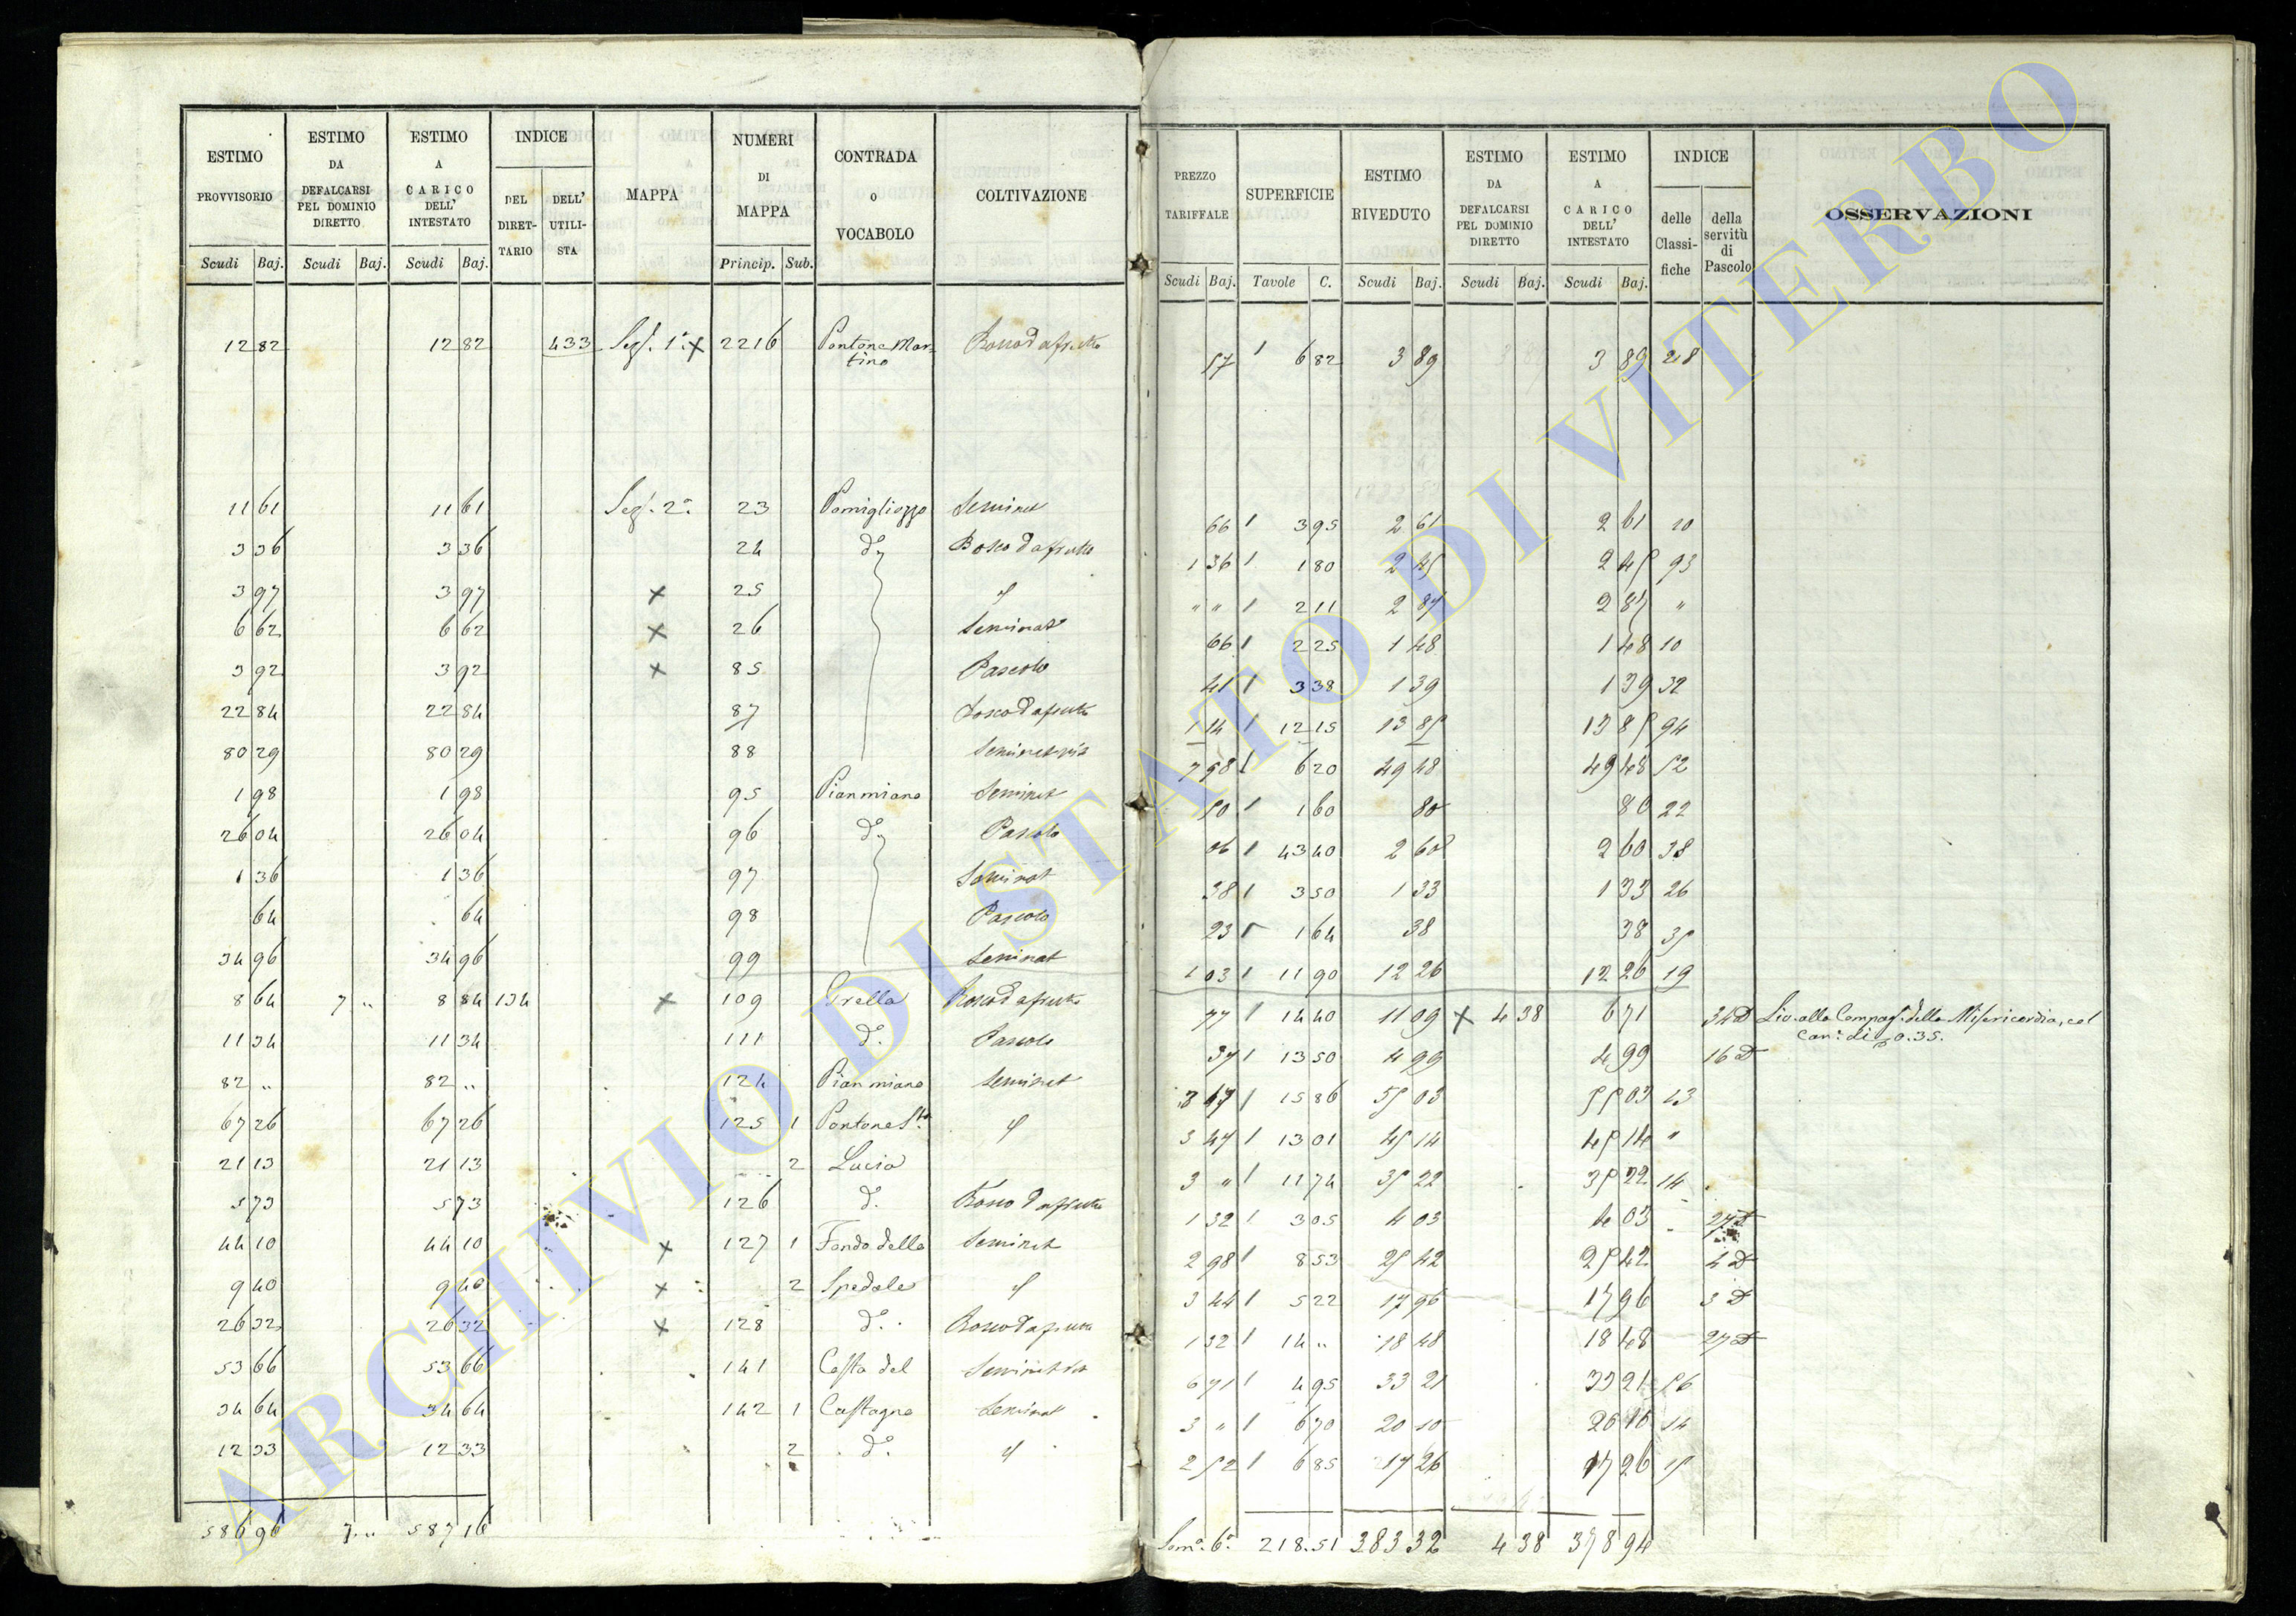 ESTIMO PROVVISORIO | ESTIMO DA DEFALCARSI PEL DOMINIO DIRETTO | ESTIMO A CARICO DELL' INTESTATO | INDICE DEL DIRETTARIO | DELL' UTILISTA | MAPPA | NUMERI DI MAPPA | CONTRADA o VOCABOLO | COLTIVAZIONE
Scudi Baj. | Scudi Baj. | Scudi Baj. | Princip. Sub.
12 82 | 12 82 | 433 | Sez. 1ª x | 2216 | Pontone Mar-
tino | Bosco d a frutto
11 61 | 11 61 | Sez. 2ª | 23 | Pomigliozzo | Seminat
3 36 | 3 36 | 24 | d° | Bosco d a frutto
3 97 | 3 97 | x | 25 | "
6 62 | 6 62 | x | 26 | Seminat
3 92 | 3 92 | x | 85 | Pascolo
22 84 | 22 84 | 87 | Bosco d a frutto
80 29 | 80 29 | 88 | Seminat vit
1 98 | 1 98 | 95 | Pianmiano | Seminat
26 04 | 26 04 | 96 | d° | Pascolo
1 36 | 1 36 | 97 | Seminat
64 | 64 | 98 | Pascolo
34 96 | 34 96 | 99 | Seminat
8 64 | 7 " | 8 84 | 134 | x | 109 | Bosco d a frutto
11 34 | 11 34 | 111 | d° | Pascolo
82 " | 82 " | 124 | Pianmiano | Seminat
67 26 | 67 26 | 125 | 1 | Pontone S.ta | "
21 13 | 21 13 | 2 | Lucia
5 73 | 5 73 | 126 | d° | Bosco d a frutto
44 10 | 44 10 | x | 127 | 1 | Fondo dello | Seminat
9 40 | 9 40 | x | 2 | Spedale | "
26 32 | 26 32 | x | 128 | d° | Bosco d a frutto
53 66 | 53 66 | 141 | Costa del | Seminat vit
34 64 | 34 64 | 142 | 1 | Castagno | Seminat
12 33 | 12 33 | 2 | d° | "
586 96 | 7 " | 587 16
PREZZO TARIFFALE | SUPERFICIE | ESTIMO RIVEDUTO | ESTIMO DA DEFALCARSI PEL DOMINIO DIRETTO | ESTIMO A CARICO DELL' INTESTATO | INDICE delle Classifiche | della servitù di Pascolo | OSSERVAZIONI
Scudi Baj. | Tavole C. | Scudi Baj. | Scudi Baj. | Scudi Baj.
57 | 6 82 | 3 89 | 3 89 | 28
66 | 3 95 | 2 61 | 2 61 | 10
1 36 | 1 80 | 2 45 | 2 45 | 93
" " | 2 11 | 2 87 | 2 87 | "
66 | 2 25 | 1 48 | 1 48 | 10
41 | 3 38 | 1 39 | 1 39 | 32
1 14 | 12 15 | 13 85 | 13 85 | 94
7 98 | 6 20 | 49 48 | 49 48 | 52
50 | 1 60 | 80 | 80 | 22
06 | 43 40 | 2 60 | 2 60 | 38
38 | 3 50 | 1 33 | 1 33 | 26
23 | 1 64 | 38 | 38 | 35
1 03 | 11 90 | 12 26 | 12 26 | 19
77 | 14 40 | 11 09 | x 4 38 | 6 71 | 34 D | Liv. alla Compag. della Misericordia, col
Can.e di 0.35.
37 | 13 50 | 4 99 | 4 99 | 16 D
3 47 | 15 86 | 55 03 | 55 03 | 13
3 47 | 13 01 | 45 14 | 45 14 | "
3 " | 11 74 | 35 22 | 35 22 | 14
1 32 | 3 05 | 4 03 | 4 03 | 27 D
2 98 | 8 53 | 25 42 | 25 42 | 4 D
3 44 | 5 22 | 17 96 | 17 96 | 3 D
1 32 | 14 " | 18 48 | 18 48 | 27 D
6 71 | 4 95 | 33 21 | 33 21 | 56
3 " | 6 70 | 20 10 | 20 10 | 14
2 52 | 6 85 | 17 26 | 17 26 | 15
Som.a 6.a | 218.51 | 383 32 | 4 38 | 378 94
ARCHIVIO DI STATO DI VITERBO